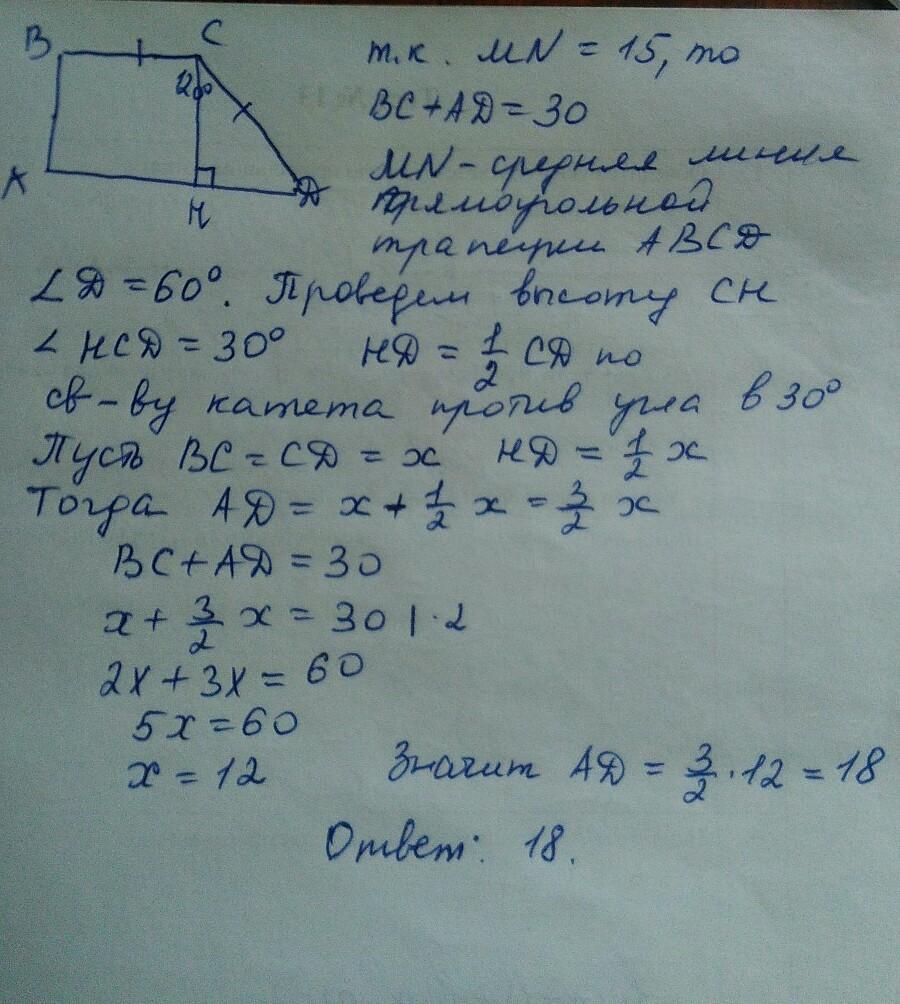 B C
120°
A H D
т.к. MN = 15, то
BC + AD = 30
MN - средняя линия
прямоугольной
трапеции ABCD
∠D = 60°. Проведем высоту CH
∠HCD = 30° HD = 1/2 CD по
св-ву катета против угла в 30°
Пусть BC = CD = x HD = 1/2 x
Тогда AD = x + 1/2 x = 3/2 x
BC + AD = 30
x + 3/2 x = 30 | · 2
2x + 3x = 60
5x = 60
x = 12 Значит AD = 3/2 · 12 = 18
Ответ: 18.